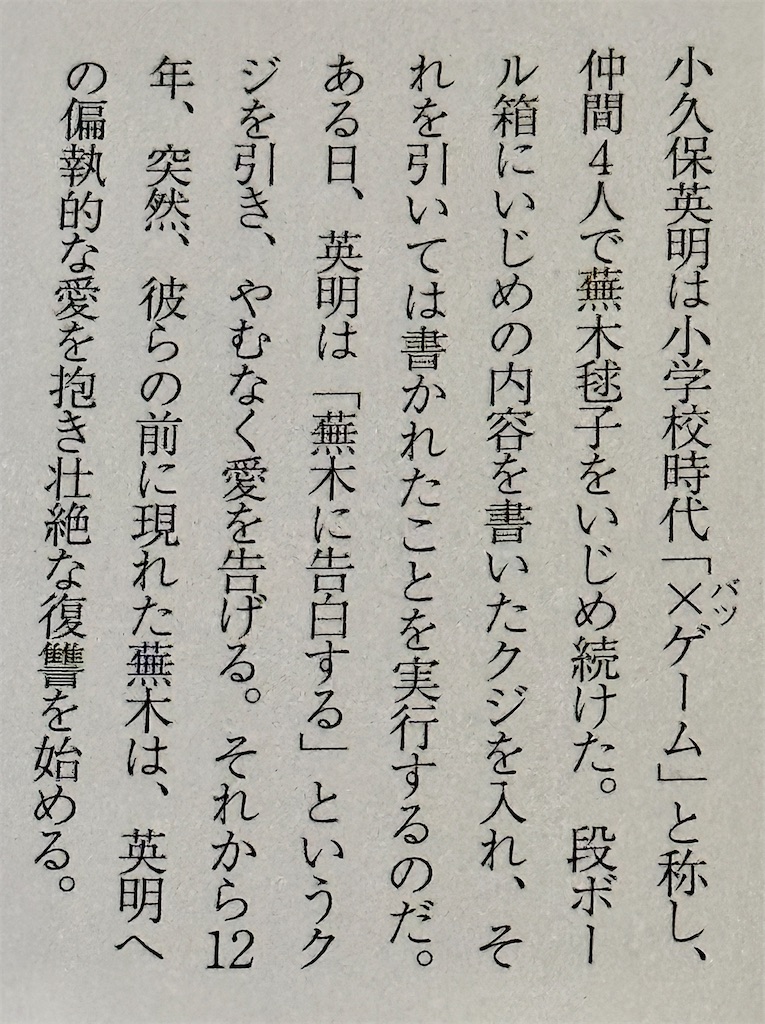 小久保英明は小学校時代「×ゲーム」と称し、
バツ
仲間4人で蕪木毬子をいじめ続けた。段ボー
ル箱にいじめの内容を書いたクジを入れ、そ
れを引いては書かれたことを実行するのだ。
ある日、英明は「蕪木に告白する」というク
ジを引き、やむなく愛を告げる。それから12
年、突然、彼らの前に現れた蕪木は、英明へ
の偏執的な愛を抱き壮絶な復讐を始める。